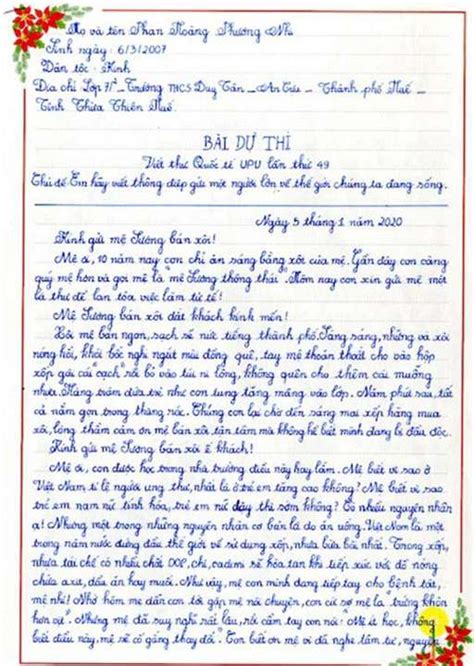 Họ và tên Phan Hoàng Phương Nhi
Sinh ngày: 6/3/2007
Dân tộc: Kinh
Địa chỉ Lớp 7/² _ Trường THCS Duy Tân _ An Cựu _ Thành phố Huế _
Tỉnh Thừa Thiên Huế.
BÀI DỰ THI
Viết thư Quốc tế UPU lần thứ 49
Chủ đề Em hãy viết thông điệp gửi một người lớn về thế giới chúng ta đang sống.
Ngày 5 tháng 1 năm 2020
Kính gửi mệ Sương bán xôi!
Mệ ơi, 10 năm nay con chỉ ăn sáng bằng xôi của mệ. Gần đây con càng
quý mệ hơn và gọi mệ là "mệ Sương thông thái". Hôm nay con xin gửi mệ một
lá thư để lan tỏa việc làm tử tế!
Mệ Sương bán xôi đắt khách kính mến!
Xôi mệ bán ngon, sạch sẽ nức tiếng thành phố. Sáng sáng, những vá xôi
nóng hổi, khói bốc nghi ngút mùi đồng quê, tay mệ thoăn thoắt cho vào hộp
xốp gài cái "cạch" rồi bỏ vào túi ni lông, không quên cho thêm cái muỗng
nhựa. Hàng trăm đứa trẻ như con tung tăng mang vào lớp. Năm phút sau, tất
cả nằm gọn trong thùng rác. Chúng con lại chờ đến sáng mai xếp hàng mua
xôi, lòng thầm cảm ơn mệ bán xôi tần tảo mà không hề biết mình đang bị đầu độc.
Kính gửi mệ Sương bán xôi ế khách!
Mệ ơi, con được học trong nhà trường điều này hay lắm. Mệ biết vì sao ở
Việt Nam tỉ lệ người ung thư, nhất là ở trẻ em tăng cao không? Mệ biết vì sao
trẻ em nam nữ tính hóa, trẻ em nữ dậy thì sớm không? Có nhiều nguyên nhân
ạ! Nhưng một trong những nguyên nhân cơ bản là do ăn uống. Việt Nam là một
trong năm nước đứng đầu thế giới về sử dụng xốp, nhựa bừa bãi nhất. Trong xốp,
nhựa tái chế có nhiều chất DOP, chì, cadimi sẽ hòa tan khi tiếp xúc với đồ nóng
chứa axit, dầu ăn hay muối. Như vậy, mệ con mình đang tiếp tay cho bệnh tật,
mệ nhỉ! Nhớ hôm mẹ dẫn con tới gặp mệ nói chuyện, con cứ sợ mệ la "trứng khôn
hơn vịt". Nhưng mệ đã suy nghĩ rất lâu, rồi cầm tay con nói: "Mệ ít học, không
biết điều này. Mệ sẽ cố gắng thay đổi". Con biết ơn mệ vì đã nghe tâm tư, nguyện